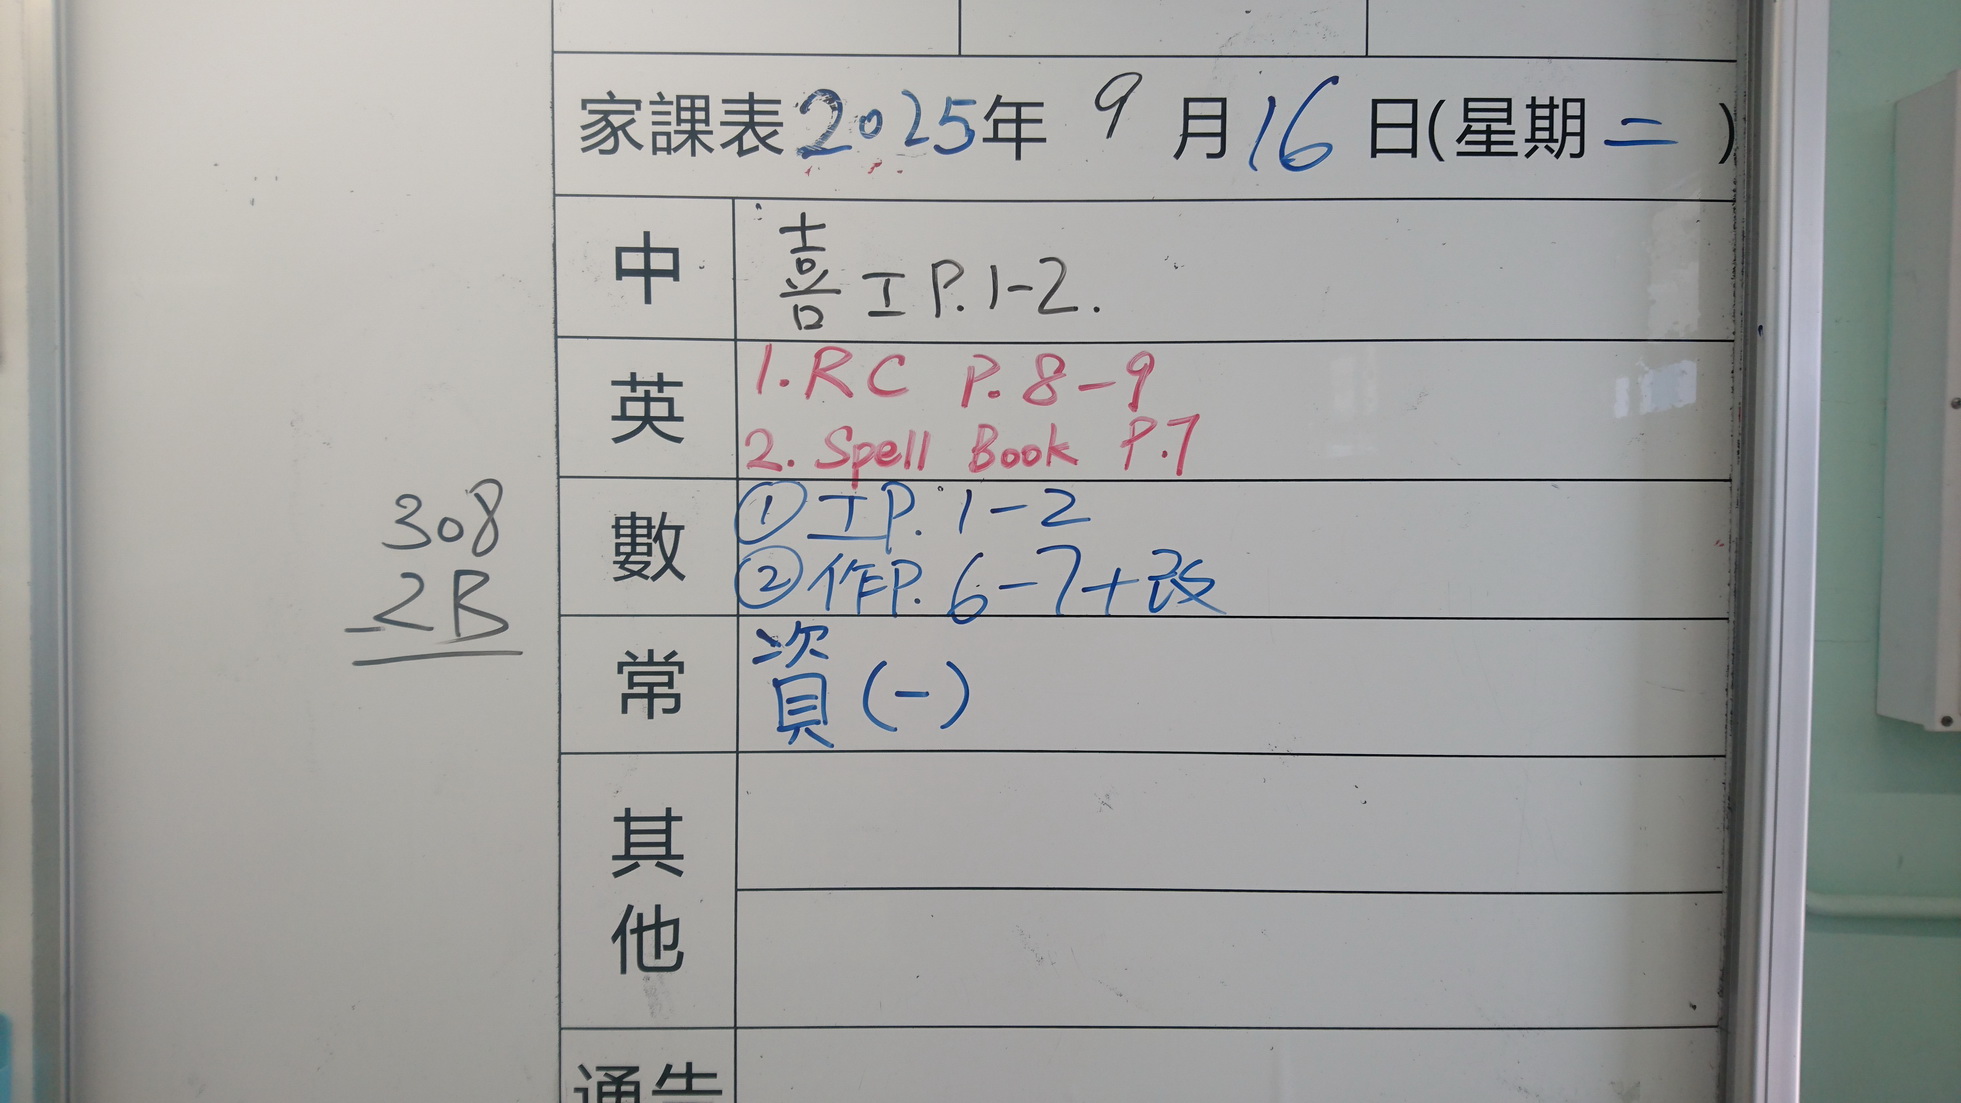 家課表2025年 9 月 16 日(星期二 )
中
喜 工 P.1-2.
英
1. RC P. 8-9
2. Spell Book P.7
數
① 工P. 1-2
② 作P. 6-7+改
常
資(一)
其他
通告
308
2B